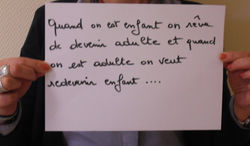 Quand on est enfant on rêve
de devenir adulte et quand
on est adulte on veut
redevenir enfant ....